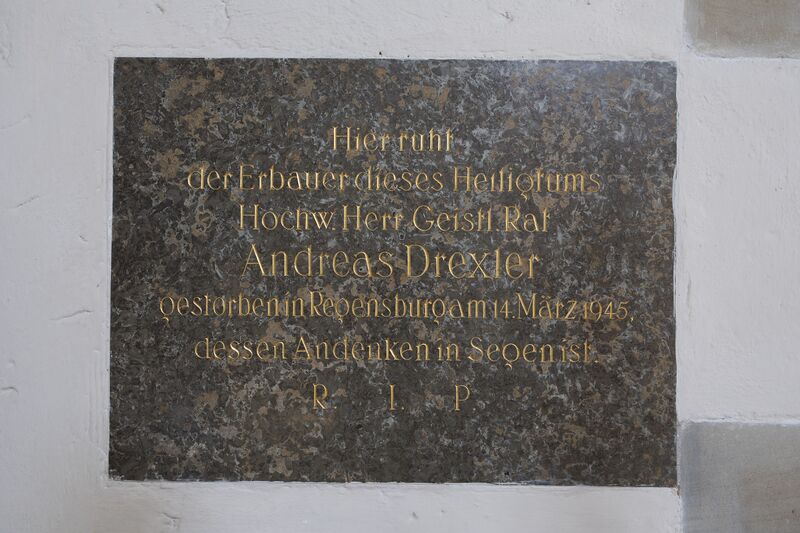 Hier ruht
der Erbauer dieses Heiligtums
Hochw. Herr Geistl. Rat
Andreas Drexler
gestorben in Regensburg am 14. März 1945,
dessen Andenken in Segen ist.
R. I. P